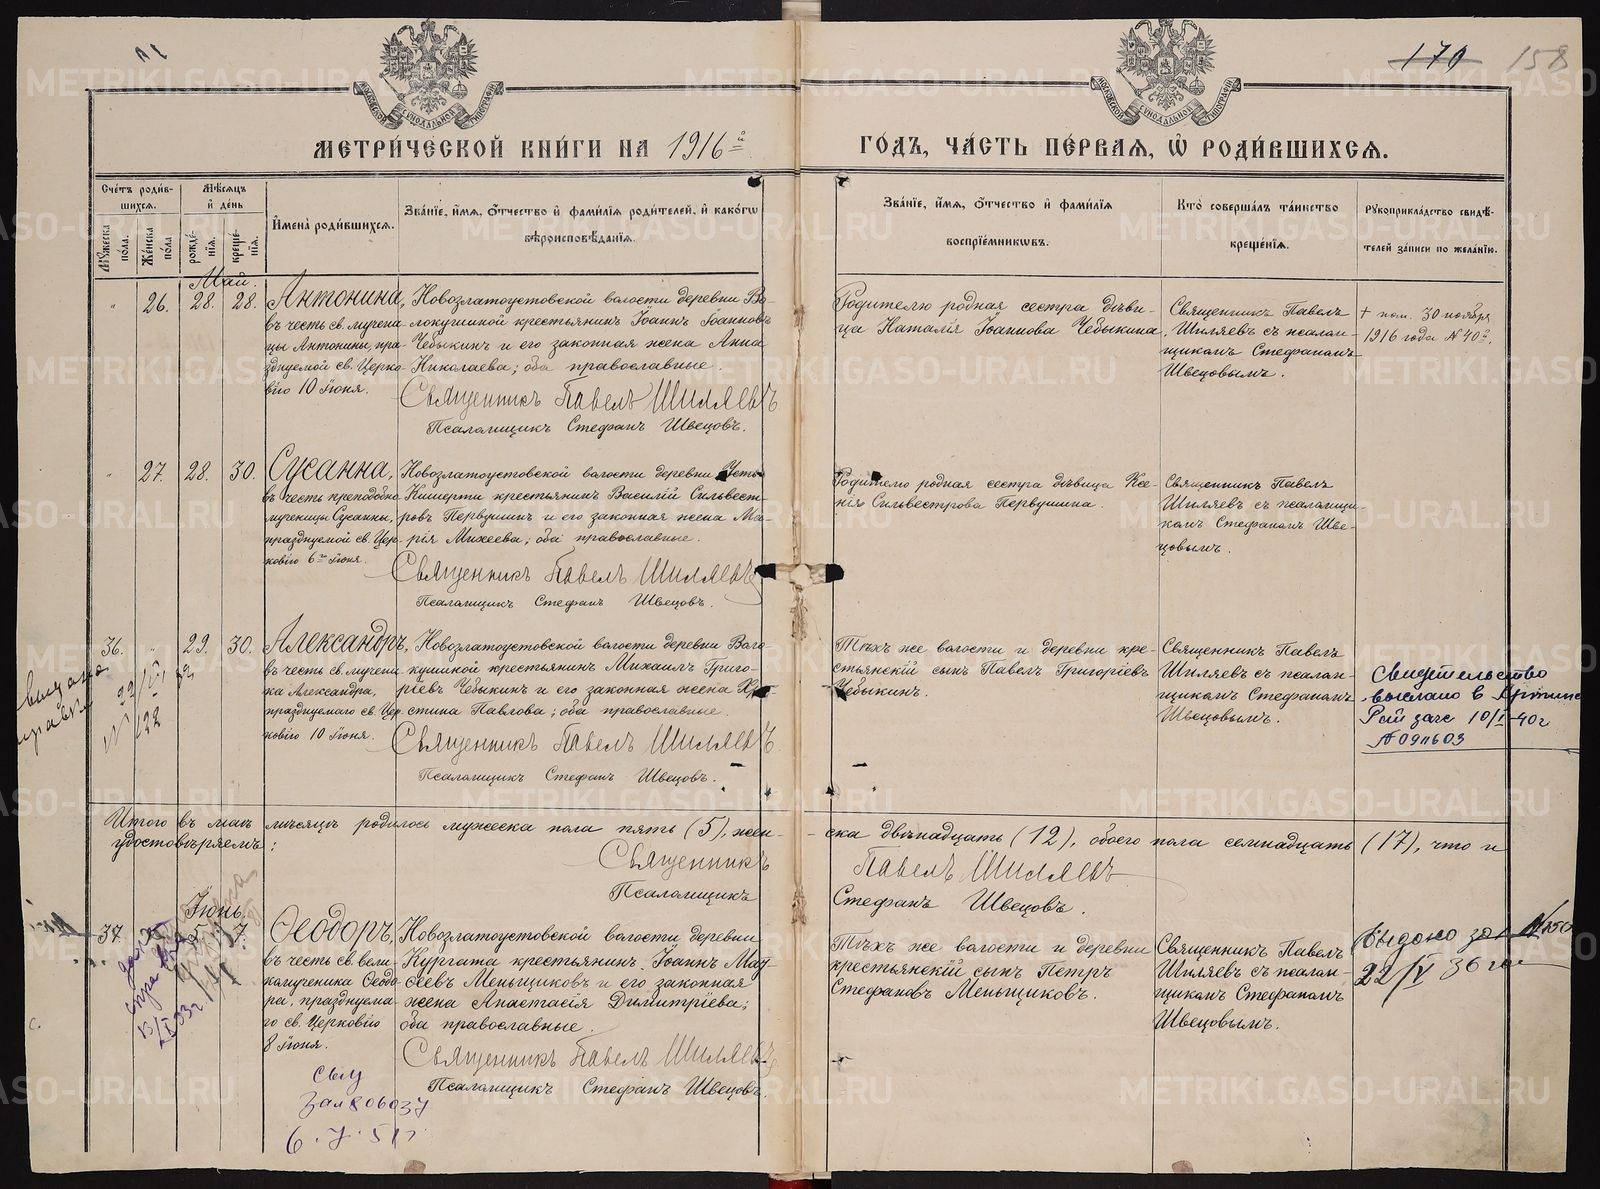 170 158
МЕТРИ́ЧЕСКОЙ КНИ́ГИ НА 1916й
ГО́ДЪ, ЧА́СТЬ ПЕ́РВАЯ, Ѡ҆ РОДИ́ВШИХСЯ.
Сче́тъ роди́в-
шихся.
Му́жеска по́ла.
Же́нска по́ла
Мѣ́сяцъ
и҆ де́нь
рожде́-
нїя.
креще́-
нїя.
И҆мена̀ роди́вшихся.
Зва́нїе, и҆́мя, о҆́тчество и҆ фами́лїя роди́телей, и҆ како́гѡ
вѣроисповѣ́данїя.
Зва́нїе, и҆́мя, о҆́тчество и҆ фами́лїя
воспрїе́мникѡвъ.
Кто̀ соверша́лъ та́инство
креще́нїя.
Рꙋкоприкла́дство свидѣ́-
телей за́писи по жела́нїю.
Май.
26. 28. 28.
Антонина,
въ честь св. мучени-
цы Антонины, пра-
зднуемой св. Церко-
вію 10 Іюня.
Новозлатоустовской волости деревни Во-
локушиной крестьянинъ Іоаннъ Іоанновъ
Чебыкинъ и его законная жена Анна
Николаева; оба православные.
Священникъ Павелъ Шиляевъ
Псаломщикъ Стефанъ Швецовъ.
Родителю родная сестра дѣви-
ца Наталія Іоаннова Чебыкина
Священникъ Павелъ
Шиляевъ съ псалом-
щикомъ Стефаномъ
Швецовымъ.
+ пом. 30 ноября
1916 года № 40й.
27. 28. 30.
Сусанна,
въ честь преподобно-
мученицы Сусанны,
празднуемой св. Цер-
ковію 6го Іюня.
Новозлатоустовской волости деревни Усть-
Кишерти крестьянинъ Василій Сильвест-
ровъ Первушинъ и его законная жена Ма-
рія Михеева; оба православные.
Священникъ Павелъ Шиляевъ
Псаломщикъ Стефанъ Швецовъ.
Родителю родная сестра дѣвица Ксе-
нія Сильвестрова Первушина.
Священникъ Павелъ
Шиляевъ съ псаломщи-
комъ Стефаномъ Шве-
цовымъ.
36. 29. 30.
Александръ,
въ честь св. мучени-
ка Александра,
празднуемаго св. Цер-
ковію 10 Іюня.
Новозлатоустовской волости деревни Воло-
кушиной крестьянинъ Михаилъ Григо-
ріевъ Чебыкинъ и его законная жена Хри-
стина Павлова; оба православные.
Священникъ Павелъ Шиляевъ
Псаломщикъ Стефанъ Швецовъ.
Тѣхъ же волости и деревни кре-
стьянскій сынъ Павелъ Григоріевъ
Чебыкинъ.
Священникъ Павелъ
Шиляевъ съ псалом-
щикомъ Стефаномъ
Швецовымъ.
Свидетельство
выслано в
10/I-40г
Итого въ маѣ мѣсяцѣ родилось мужеска пола пять (5), жен-
ска двѣнадцать (12), обоего пола семнадцать (17), что и
удостовѣряемъ:
Священникъ Павелъ Шиляевъ
Псаломщикъ Стефанъ Швецовъ.
Іюнь.
37. 5. 7.
Ѳеодоръ,
въ честь св. вели-
комученика Ѳеодо-
ра, празднуема-
го св. Церковію
8 Іюня.
Новозлатоустовской волости деревни
Кургата крестьянинъ Іоаннъ Мат-
ѳеевъ Меньщиковъ и его законная
жена Анастасія Димитріева;
оба православные.
Священникъ Павелъ Шиляевъ
Псаломщикъ Стефанъ Швецовъ.
Тѣхъ же волости и деревни
крестьянскій сынъ Петръ
Стефановъ Меньщиковъ.
Священникъ Павелъ
Шиляевъ съ псалом-
щикомъ Стефаномъ
Швецовымъ.
22/V 36 го
METRIKI.GASO-URAL.RU